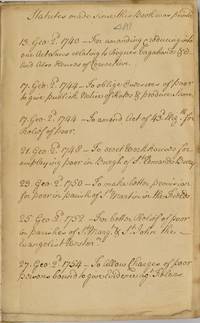 Statutes made since this Book was printed
13. Geo: 2d. 1740 – For amending & reducing into
one Act Laws relating to Rogues Vagabonds &c
and also Houses of Correction.
17. Geo: 2d. 1744 – To oblige Overseers of poor
to give publick Notice of Rates & produce Same
17. Geo: 2d. 1744 – To amend Act of 43. Eliz. for
Relief of poor.
21. Geo: 2d. 1748 – To erect Workhouses for
employing poor in Burgh of St. Edmunds Bury
23. Geo: 2d. 1750 – To make better provision
for poor in parish of St. Martin in the Fields
25. Geo: 2d. 1752 – For better Relief of poor
in parishes of St. Marg. & St. John the
Evangelist Westmr.
27. Geo: 2d. 1754 – To allow Charges of poor
persons bound to give Evidence agt. Felons